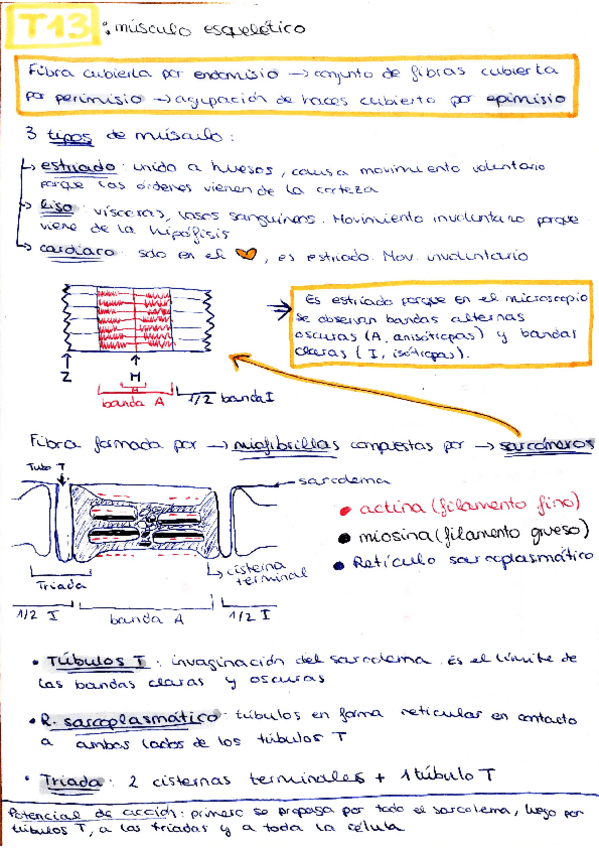 T13: músculo esquelético
Fibra cubierta por endomisio → conjunto de fibras cubierta
por perimisio → agrupación de haces cubierto por epimisio
3 tipos de músculo:
estriado: unido a huesos, causa movimiento voluntario
porque las órdenes vienen de la corteza
liso: vísceras, vasos sanguíneos. Movimiento involuntario porque
viene de la hipófisis
cardíaco: solo en el 🧡, es estriado. Mov. involuntario
Es estriado porque en el microscopio
se observan bandas alternas
oscuras (A, anisótropas) y bandas
claras (I, isótropas).
Z
H
M
banda A
1/2 banda I
Fibra formada por → miofibrillas compuestas por → sarcómeros
Tubo T
sarcolema
actina (filamento fino)
miosina (filamento grueso)
Retículo sarcoplasmático
cisterna
terminal
Triada
1/2 I
banda A
1/2 I
• Túbulos T: invaginación del sarcolema. Es el límite de
las bandas claras y oscuras
• R. sarcoplasmático: túbulos en forma reticular en contacto
a ambos lados de los túbulos T
• Triada: 2 cisternas terminales + 1 túbulo T
Potencial de acción: primero se propaga por todo el sarcolema, luego por
túbulos T, a las triadas y a toda la célula